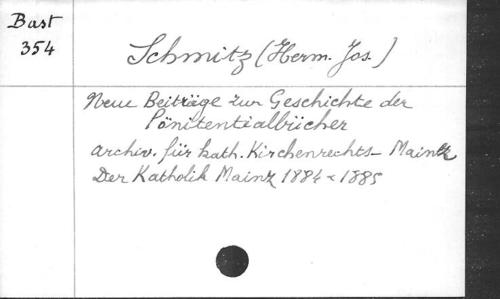 Bast
354
Schmitz (Herm. Jos.)
Neue Beiträge zur Geschichte der
Pönitentialbücher
Archiv. für kath. Kirchenrechts – Maintz
Der Katholik Mainz 1884 < 1885